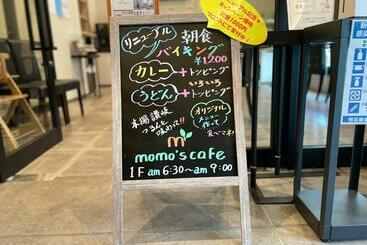 リニューアル
朝食
バイキング
¥1200
カレー + トッピング
いろいろ
うどん + トッピング
本場讃岐
つるんと
味わって!!
オリジナル
メニュー
作って
食べてネ
momo's cafe
1F am 6:30~am 9:00